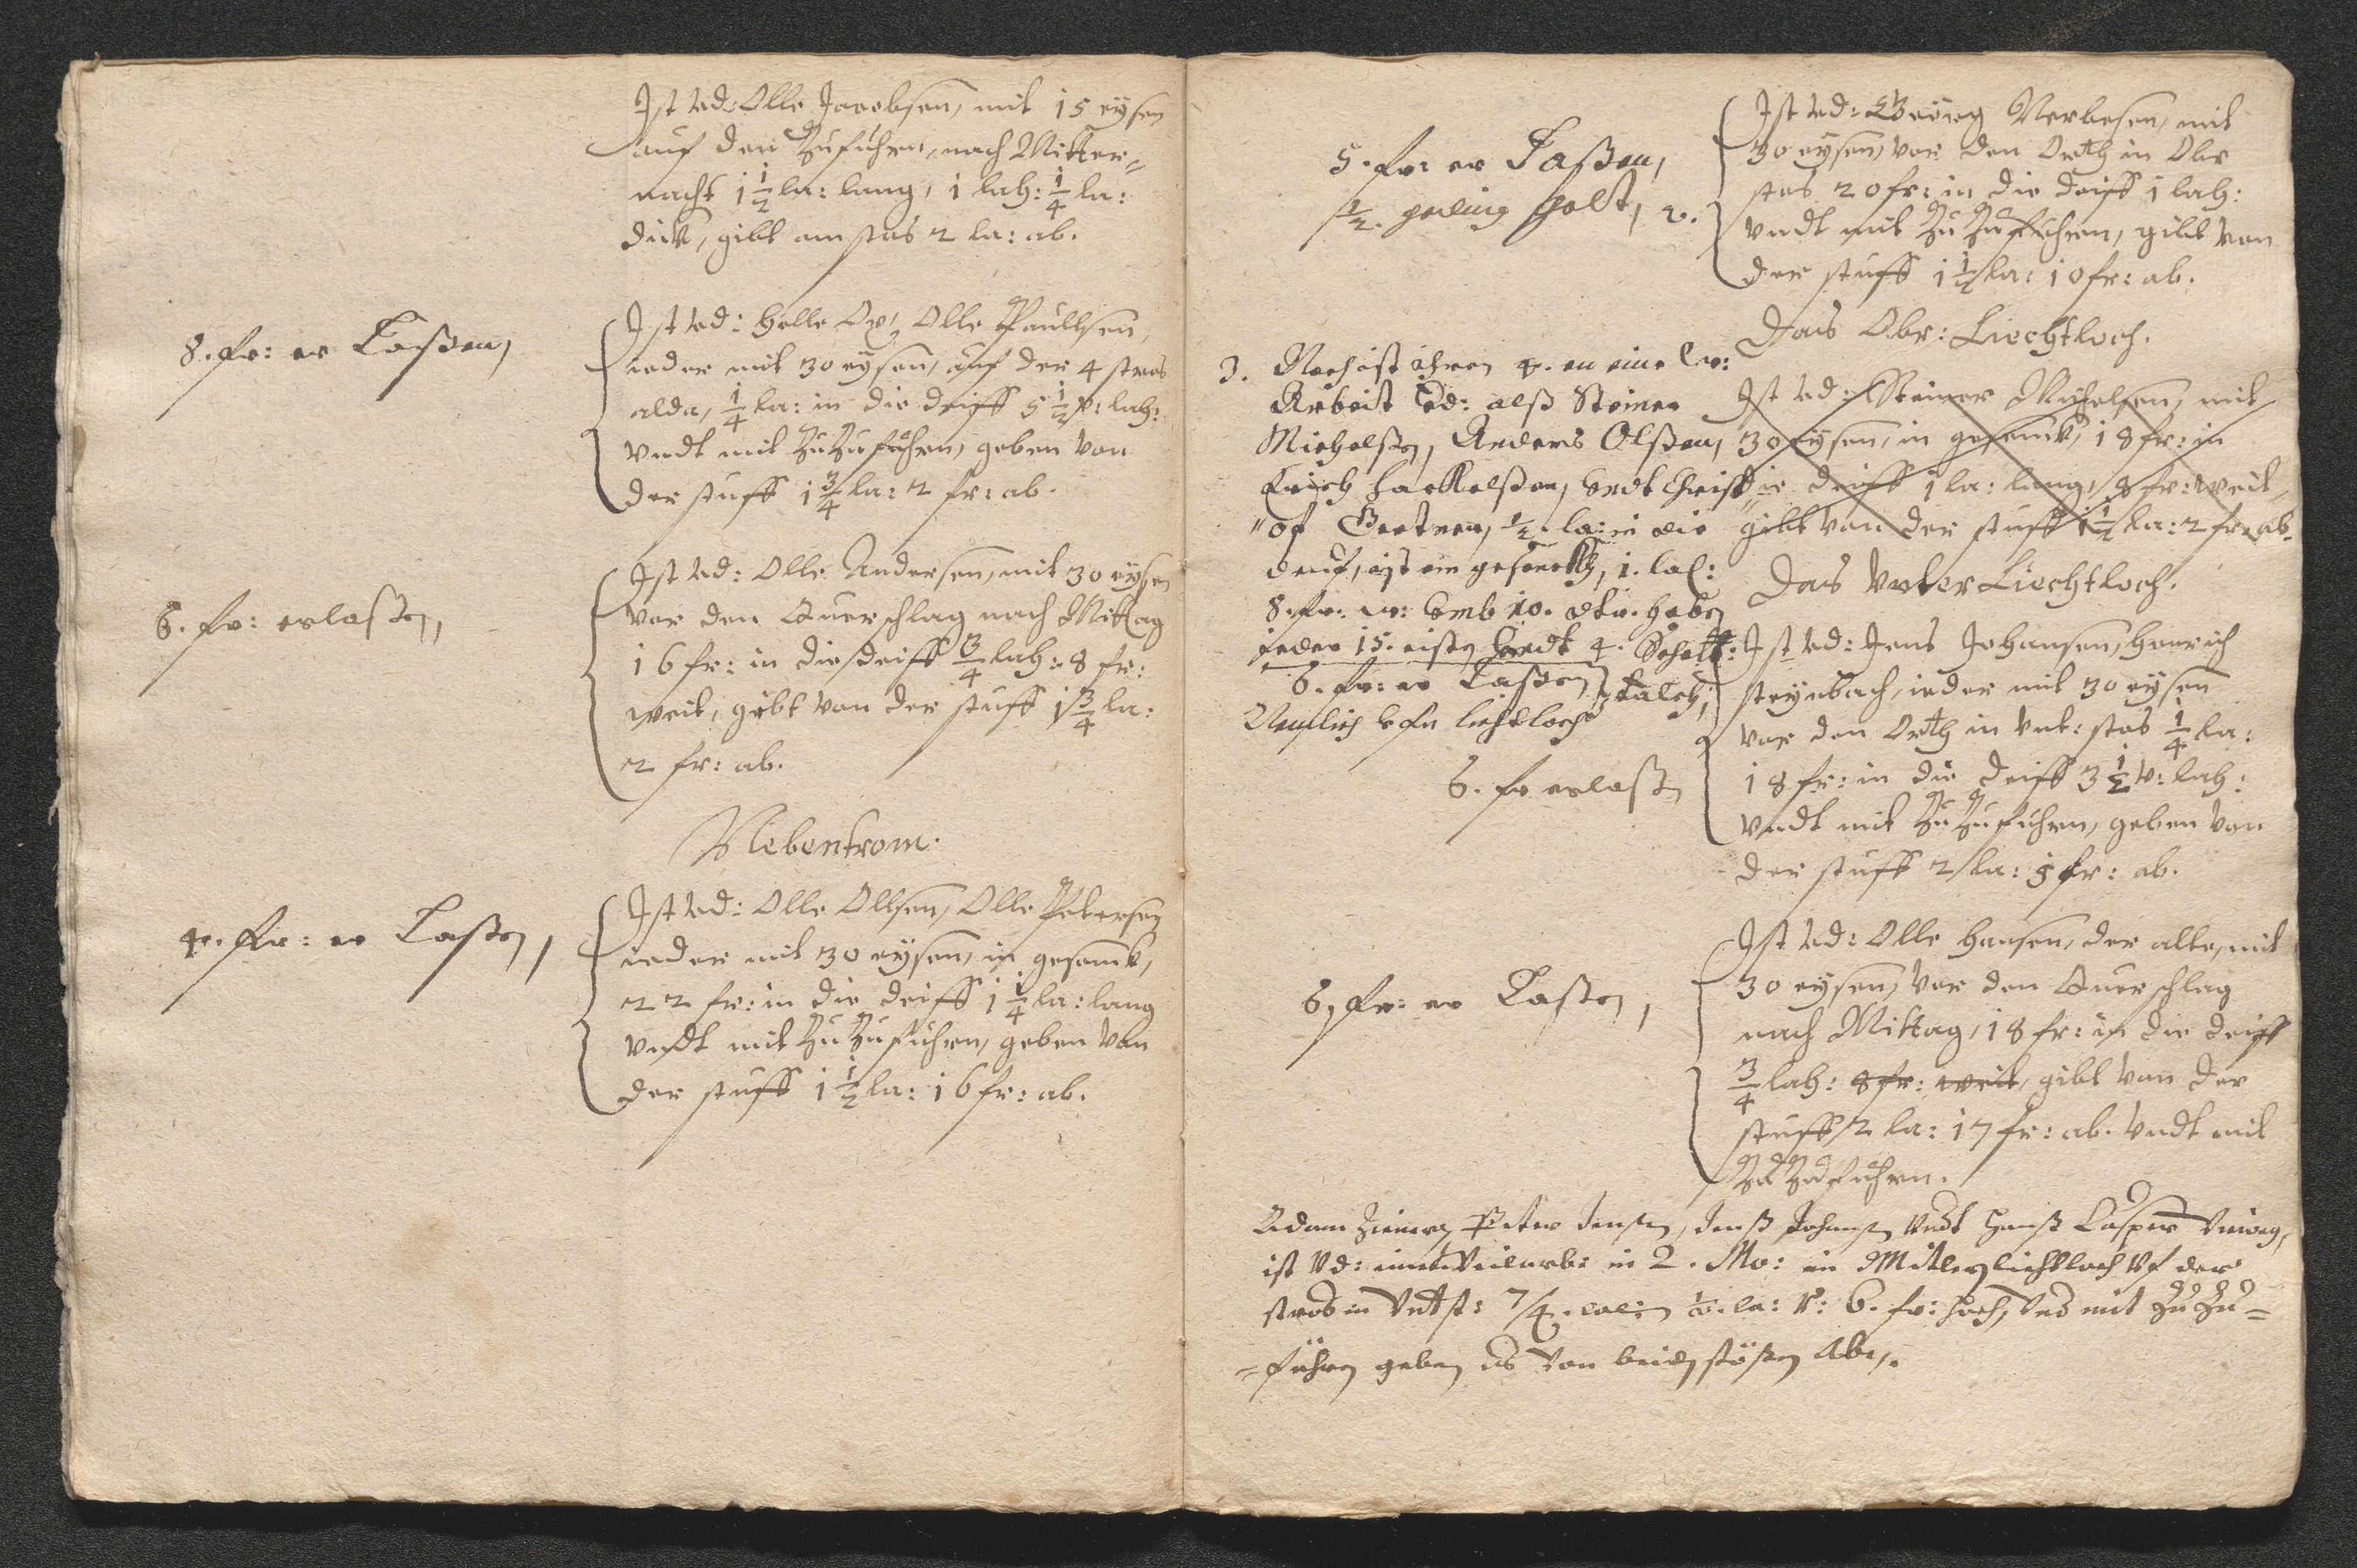 Ist Vd: Olle Jacobsen, mit 15 eysen
auf den Zufuhren, nach Mitter-
nacht 1 1/2 la: lang, 1 lah: 1/4 la:
dick, gibt am stos 2 la: ab.
8. fr: er Laßen,
Ist Vd: Helle Ox, Olle Paullsen,
ieder mit 30 eysen, auf der 4 stros
alda, 1/4 la: in die deiff 5 1/2 v: lah:
Vndt mit Zu Zufuhren, geben von
der stuff 1 3/4 la: 2 fr: ab.
6. fr: erlaßen,
Ist Vd: Olle Andersen, mit 30 eysen
vor den Querschlag nach Mittag
16 fr: in die deiff 3/4 lah: 8 fr:
weit, gibt von der stuff 1 3/4 la:
2 fr: ab.
Nebentrom.
4. fr: er Laßen,
Ist Vd: Olle Ollsen, Olle Petersen
ieder mit 30 eysen, in gesemck,
22 fr: in die deiff 1 1/4 la: lang
Vndt mit Zu Zufuhren, geben von
der stuff 1 1/2 la: 16 fr: ab.
5. fr: er Laßen,
1/2. geding holt, 2.
Ist Vd: Georg Nerbesen, mit
30 eysen, vor den Orth in Obr
stos 20 fr: in die deiff 1 lah:
Vndt mit Zu Zufuhren, gibt von
der stuff 1 1/2 la: 10 fr: ab.
Das Obr: Liechtloch.
3. Noch ist ihren 4. an eine
Arbeit Vd: alß Steiner
Michelßen, Anders Olßen,
Erich Hackelßen, Vndt Christ
"of Gertner, 1/2. la: in die
deuf, ist ein gesenckh, 1. lal:
8. fr. w: Vmb 10. dlr. haben
ieder 15. eisen Vndt 4. Schett:
6. fr: er Laßen talch,
Nemlich Liechtloch
Ist Vd: Steiner Michelsen, mit
30 eysen, in gesemck, 18 fr: in
die deiff 1 la: lang, 8 fr: weit,
gibt von der stuff 1 1/2 la: 2 fr: ab.
Das Vnter Liechtloch.
6. fr erlaßen
Ist Vd: Jens Johansen, Henrich
steynbach, ieder mit 30 eysen
vor den Orth in Vnt: stos 1/4 la:
18 fr: in die deiff 3 1/2 v: lah:
Vndt mit Zu Zufuhren, geben von
der stuff 2 la: 5 fr: ab.
6, fr: er Laßen,
Ist Vd: Olle Hansen, der alte, mit
30 eysen, vor den Querschlag
nach Mittag, 18 fr: in die deiff
3/4 lah: 8 fr: weit, gibt von der
stuff 2 la: 17 fr: ab. Vndt mit
Zu Zufuhren.
Adam Zimerß Peter Jenßen, Jenß Johanßen Vndt Hanß Casper
ist Vd: in 2. Mo: im Mitlern liechtloch Vf der
stros in Vnt st: 7/4. lal: la: V: 6. fr: hoch, Vnd mit Zu Zu=
=fuhren geben es von beiden stößen Abe,.